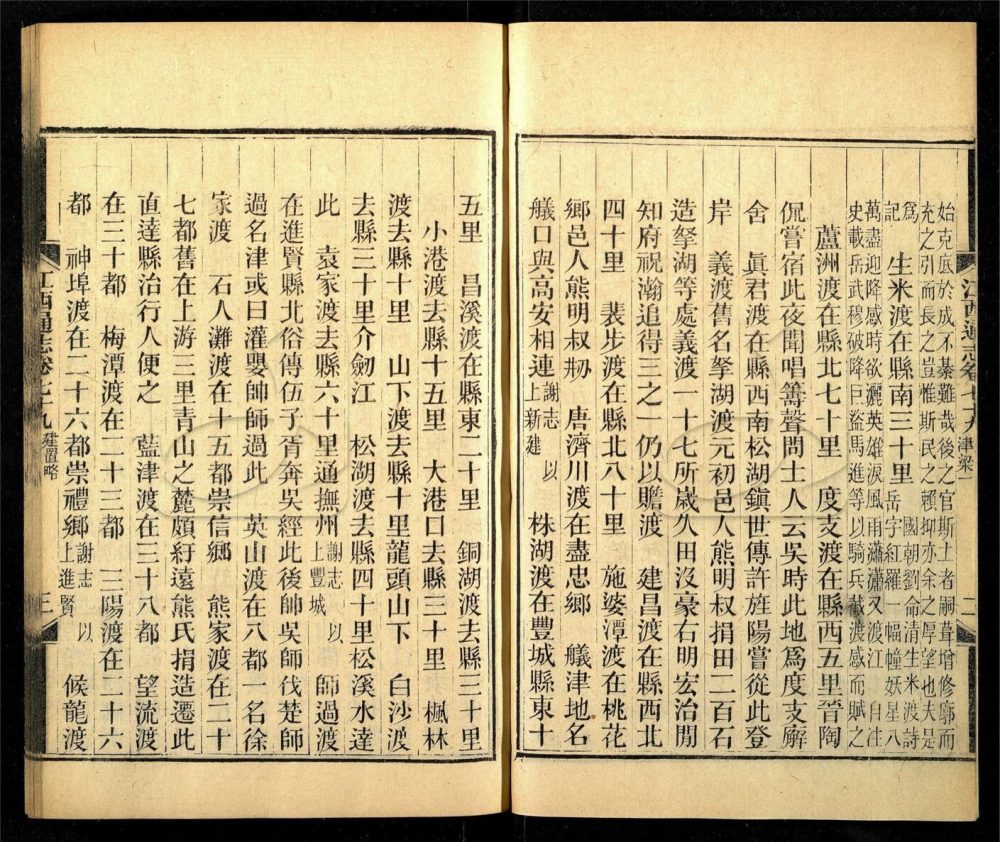 始克底於成不綦難哉後之官斯土者嗣葺增修廓而
充之引而長之豈惟斯民之賴抑亦余之厚望也夫是
爲記
生米渡在縣南三十里
國朝劉命清生米渡詩
岳字紅羅一幅幢妖星八
萬盡迎降感時欲灑英雄淚風雨瀟瀟又渡江 自注
史載岳武穆破降巨盜馬進等以騎兵截渡感而賦之
蘆洲渡在縣北七十里 度支渡在縣西五里晉陶
侃嘗宿此夜聞唱籌聲問土人云吳時此地爲度支廨
舍 眞君渡在縣西南松湖鎭世傳許旌陽嘗從此登
岸 義渡舊名孥湖渡元初邑人熊明叔捐田二百石
造孥湖等處義渡一十七所歲久田沒豪右明宏治閒
知府祝瀚追得三之一仍以贍渡 建昌渡在縣西北
四十里 裴步渡在縣北八十里 施婆潭渡在桃花
鄉邑人熊明叔刱 唐濟川渡在盡忠鄉 艤津地名
艤口與高安相連謝志 以上新建 株湖渡在豐城縣東十
江西通志卷七十九 津梁一 二
五里 昌溪渡在縣東二十里 銅湖渡去縣三十里
小港渡去縣十五里 大港口去縣三十里 楓林
渡去縣十里 山下渡去縣十里龍頭山下 白沙渡
去縣三十里介劒江 松湖渡去縣四十里松溪水達
此 袁家渡去縣六十里通撫州謝志 以上豐城 師過渡
在進賢縣北俗傳伍子胥奔吳經此後帥吳師伐楚師
過名津或曰灌嬰帥師過此 英山渡在八都一名徐
家渡 石人灘渡在十五都崇信鄉 熊家渡在二十
七都舊在上游三里青山之麓頗紆遠熊氏捐造遷此
直達縣治行人便之 藍津渡在三十八都 望流渡
在三十都 梅潭渡在二十三都 三陽渡在二十六
都 神埠渡在二十六都崇禮鄉謝志 以上進賢 候龍渡
江西通志卷七十九 建置略 三